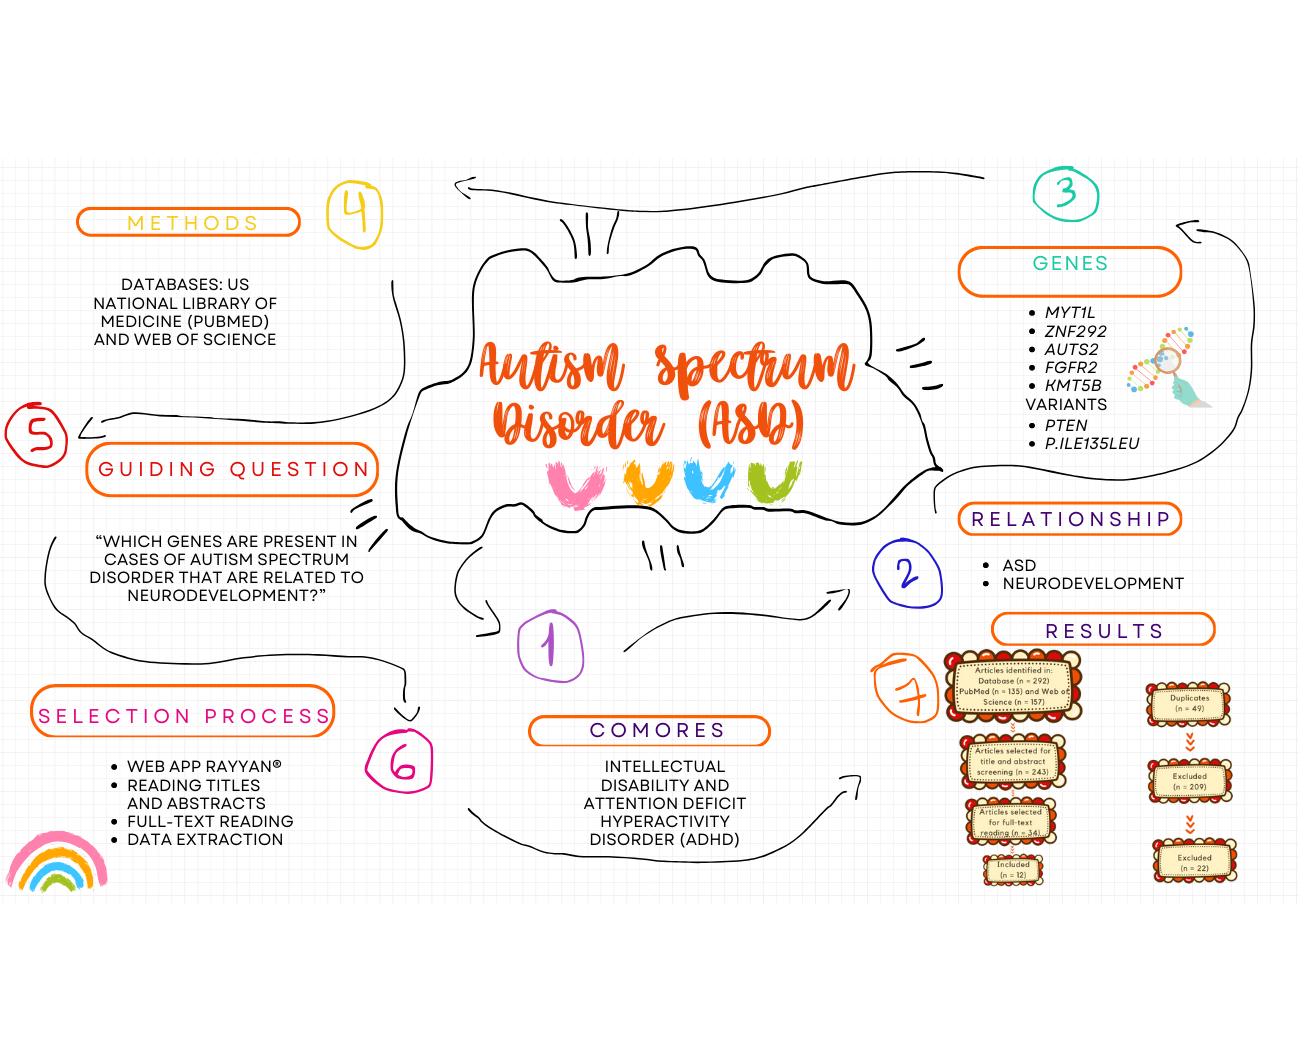 Autism Spectrum
Disorder (ASD)
1
COMORES
INTELLECTUAL
DISABILITY AND
ATTENTION DEFICIT
HYPERACTIVITY
DISORDER (ADHD)
2
RELATIONSHIP
• ASD
• NEURODEVELOPMENT
3
GENES
• MYT1L
• ZNF292
• AUTS2
• FGFR2
• KMT5B
VARIANTS
• PTEN
• P.ILE135LEU
4
METHODS
DATABASES: US
NATIONAL LIBRARY OF
MEDICINE (PUBMED)
AND WEB OF SCIENCE
5
GUIDING QUESTION
“WHICH GENES ARE PRESENT IN
CASES OF AUTISM SPECTRUM
DISORDER THAT ARE RELATED TO
NEURODEVELOPMENT?”
6
SELECTION PROCESS
• WEB APP RAYYAN®
• READING TITLES
AND ABSTRACTS
• FULL-TEXT READING
• DATA EXTRACTION
7
RESULTS
Articles identified in:
Database (n = 292)
PubMed (n = 135) and Web of
Science (n = 157)
Duplicates
(n = 49)
Articles selected for
title and abstract
screening (n = 243)
Excluded
(n = 209)
Articles selected
for full-text
reading (n = 34)
Excluded
(n = 22)
Included
(n = 12)